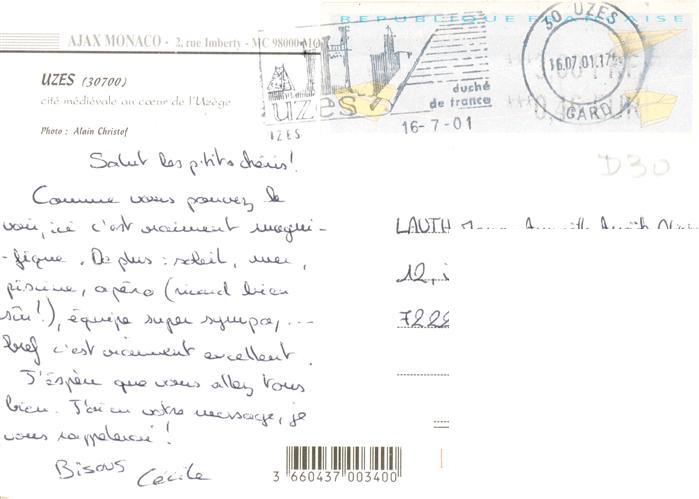 AJAX MONACO - 2, rue Imberty - MC 98000 MO
UZES (30700)
cité médiévale au cœur de l'Uzège
Photo : Alain Christof
REPUBLIQUE FRANÇAISE
uzes
UZES
duché
de france
16-7-01
30 UZES
16.07.01.17
GARD
D30
Salut les p'tits chéris!
Comme vous pouvez le
voir, ici c'est vraiment magni-
-fique. De plus : soleil, mer,
piscine, apéro (ricard bien
sûr!), équipe super sympa, ...
bref c'est vraiment excellent.
J'espère que vous allez tous
bien. J'ai eu votre message, je
vous rappelerai!
Bisous Cécile
LAUTH
12,
722
3 660437 003400